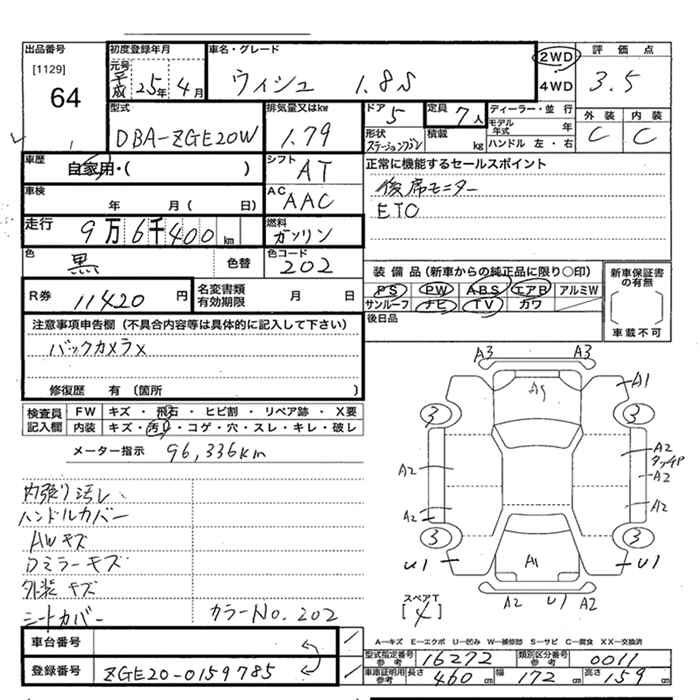 出品番号
[1129]
64
初度登録年月
元号
平成 25年 4月
車名・グレード
ウィシュ 1.8S
2WD
4WD
評価点
3.5
外装 内装
C C
型式
DBA-ZGE20W
排気量又はkw
1.79
ドア
5
定員
7人
形状
ステーションワゴン
積載
kg
ディーラー・並行
モデル年式 年
ハンドル 左・右
車歴
自家用・( )
シフト
AT
車検
年 月( 日)
AC
AAC
正常に機能するセールスポイント
後席モニター
ETC
走行
9万6千400km
燃料
ガソリン
色
黒
色替
色コード
202
R券
11420円
名変書類有効期限
月 日
装備品(新車からの純正品に限り○印)
PS PW ABS エアB アルミW
サンルーフ ナビ TV カワ
後日品
新車保証書の有無
車載不可
注意事項申告欄(不具合内容等は具体的に記入して下さい)
バックカメラx
修復歴 有(箇所 )
検査員記入欄
FW キズ・飛石・ヒビ割・リペア跡・X要
内装 キズ・汚れ・コゲ・穴・スレ・キレ・破レ
メーター指示 96,336km
内張り汚レ
ハンドルカバー
AWキズ
Dミラーキズ
外装キズ
シートカバー
カラーNo.202
A3 A3
A1
A1
3 3
A2 A2
タッチP
A2
A2 A2
3 3
U1 A1 U1
A2 U1 A2
スペアT
[4]
A―キズ E―エクボ U―凹み W―補修跡 S―サビ C―腐食 XX―交換済
車台番号
登録番号
ZGE20-0159785
型式指定番号参考
16272
類別区分番号参考
0011
車庫証明用参考
長さ 460cm 幅 172cm 高さ 159cm